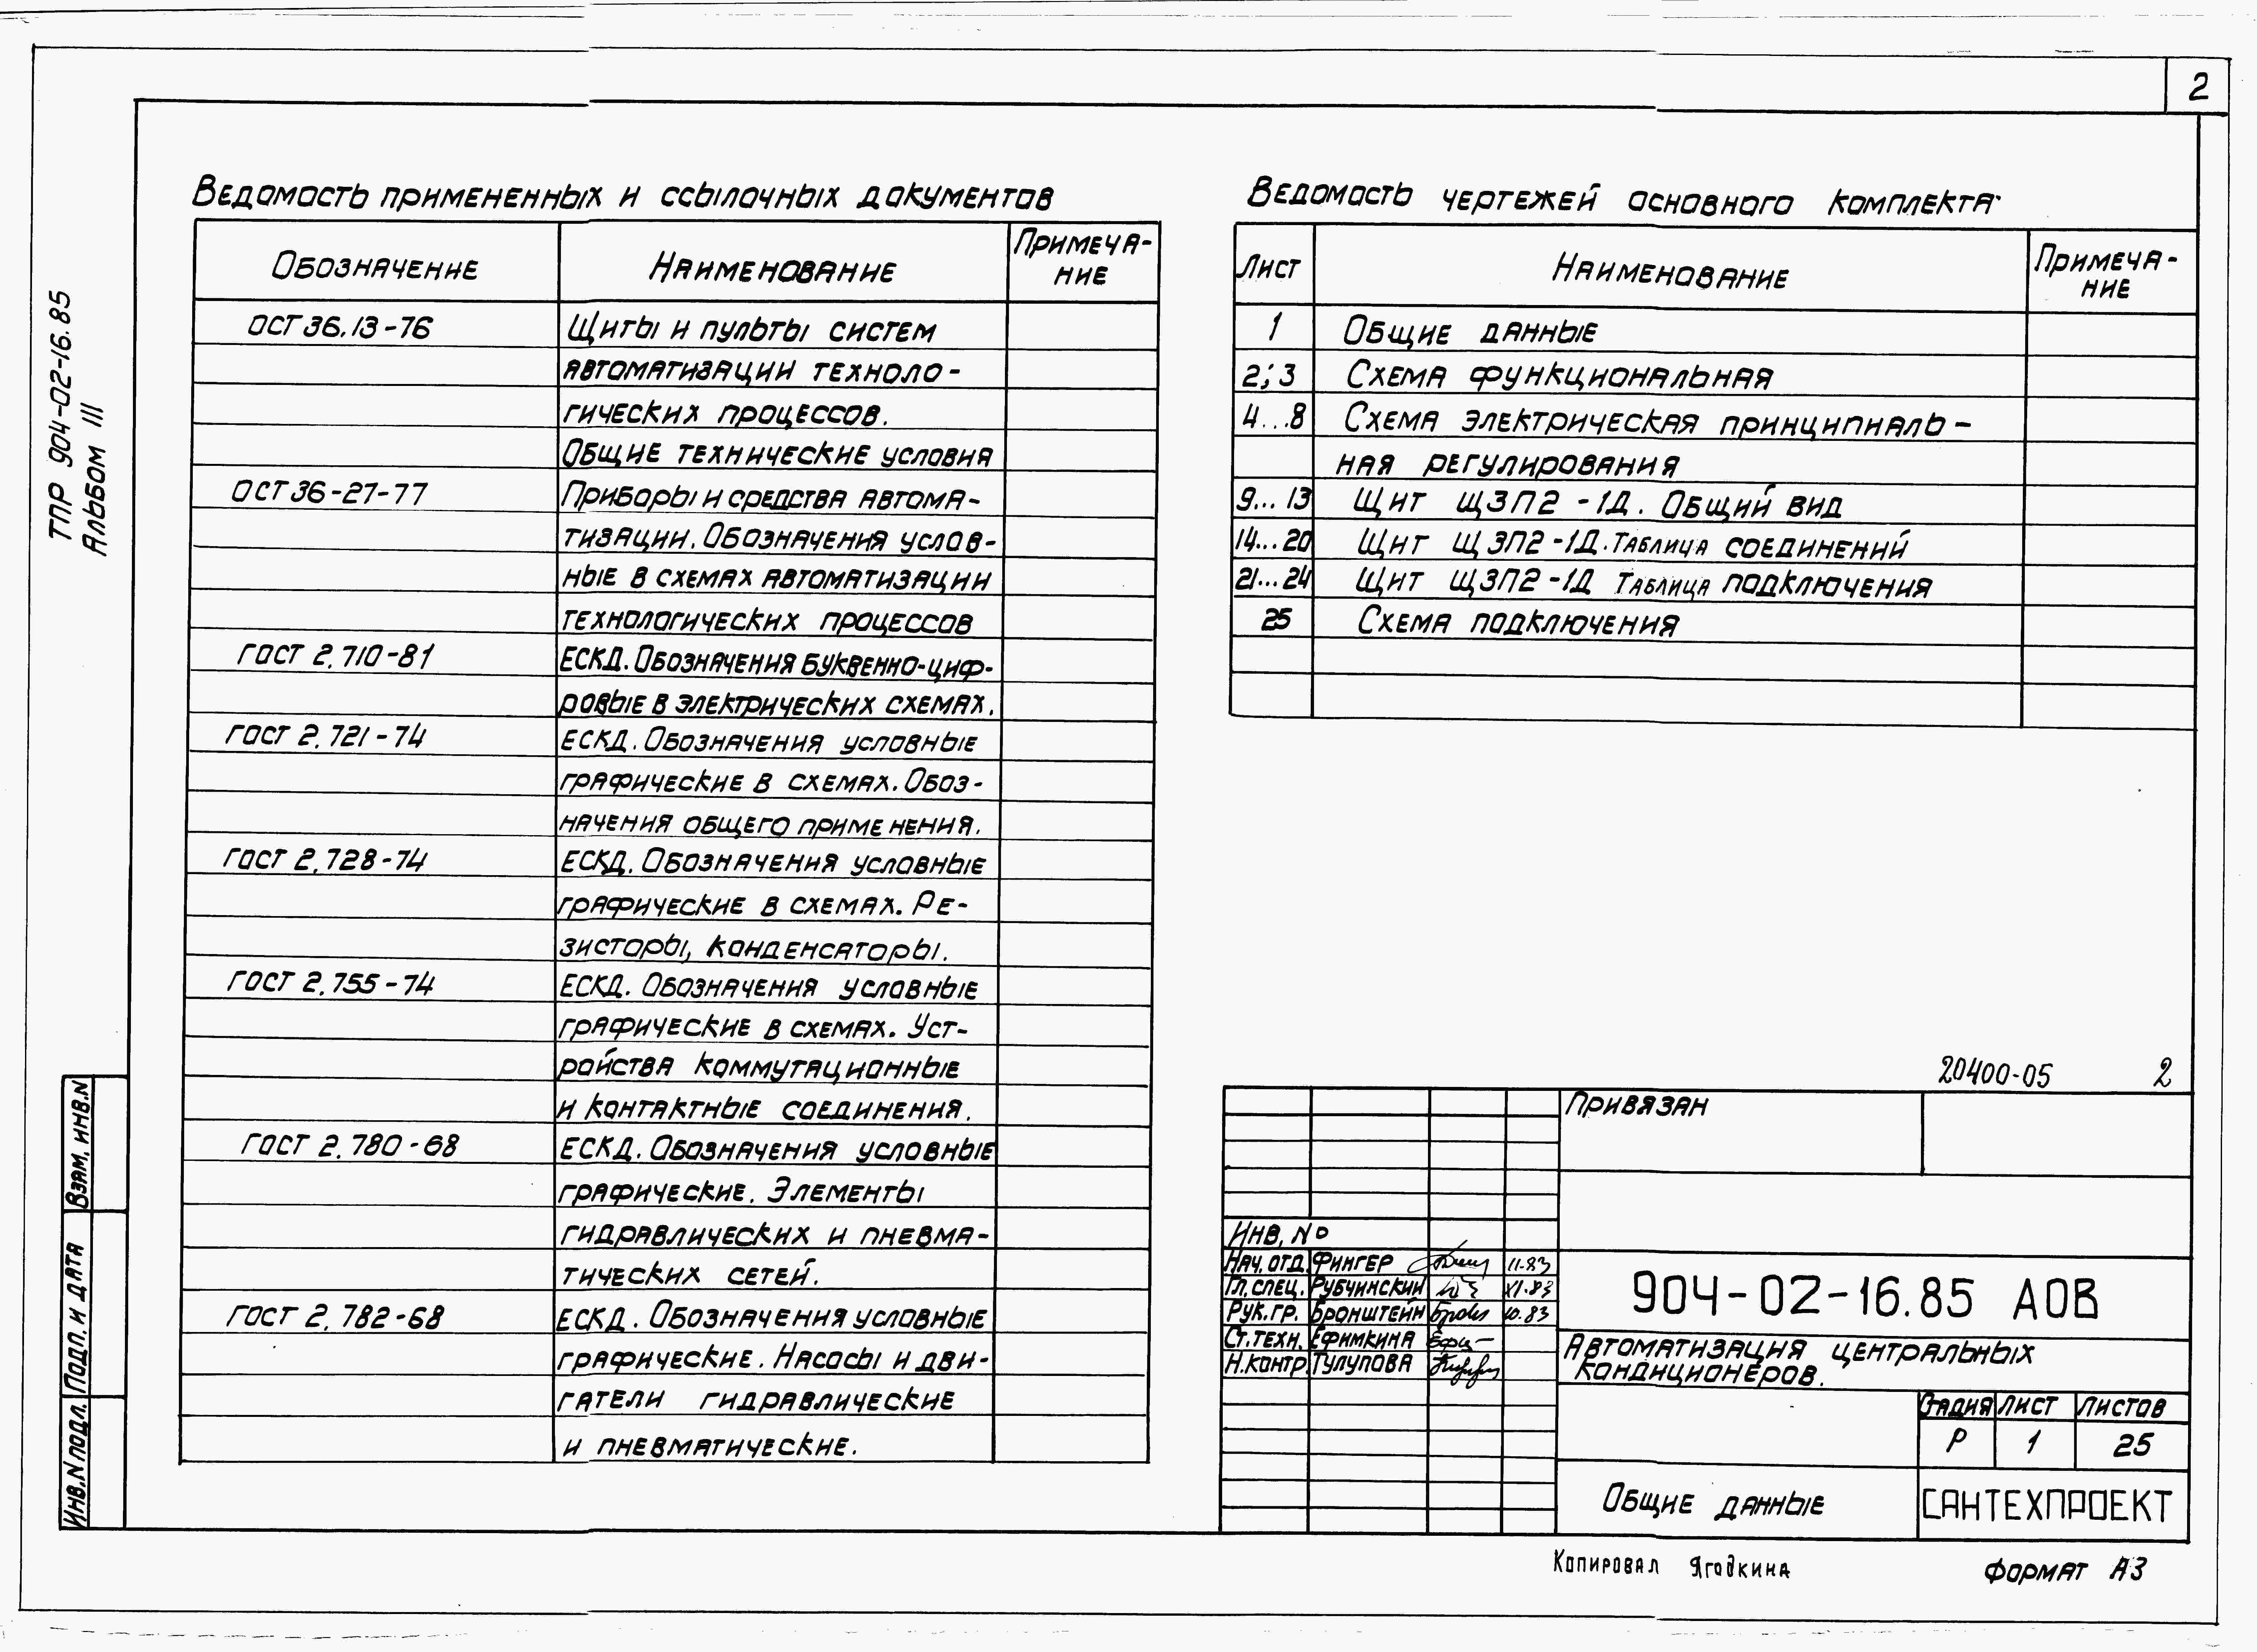 2
ТПР 904-02-16.85
Альбом III
Ведомость примененных и ссылочных документов
Обозначение Наименование Примеча-
ние
ОСТ 36.13-76 Щиты и пульты систем
автоматизации техноло-
гических процессов.
Общие технические условия
ОСТ 36-27-77 Приборы и средства автома-
тизации. Обозначения услов-
ные в схемах автоматизации
технологических процессов
ГОСТ 2.710-81 ЕСКД. Обозначения буквенно-циф-
ровые в электрических схемах.
ГОСТ 2.721-74 ЕСКД. Обозначения условные
графические в схемах. Обоз-
начения общего применения.
ГОСТ 2.728-74 ЕСКД. Обозначения условные
графические в схемах. Ре-
зисторы, конденсаторы.
ГОСТ 2.755-74 ЕСКД. Обозначения условные
графические в схемах. Уст-
ройства коммутационные
и контактные соединения.
ГОСТ 2.780-68 ЕСКД. Обозначения условные
графические. Элементы
гидравлических и пневма-
тических сетей.
ГОСТ 2.782-68 ЕСКД. Обозначения условные
графические. Насосы и дви-
гатели гидравлические
и пневматические.
Ведомость чертежей основного комплекта
Лист Наименование Примеча-
ние
1 Общие данные
2; 3 Схема функциональная
4...8 Схема электрическая принципиаль-
ная регулирования
9...13 Щит ЩЗП2-1Д. Общий вид
14...20 Щит ЩЗП2-1Д. Таблица соединений
21...24 Щит ЩЗП2-1Д Таблица подключения
25 Схема подключения
20400-05 2
Привязан
Инв. №
Нач. отд. Фингер 11.83
Гл. спец. Рубчинский XI.83
Рук. гр. Бронштейн 10.83
Ст. техн. Ефимкина
Н. контр. Тулупова
904-02-16.85 АОВ
Автоматизация центральных
кондиционеров.
Стадия Лист Листов
Р 1 25
Общие данные
САНТЕХПРОЕКТ
Копировал Ягодкина Формат А3
Взам. инв. N
Подп. и дата
Инв. N подл.